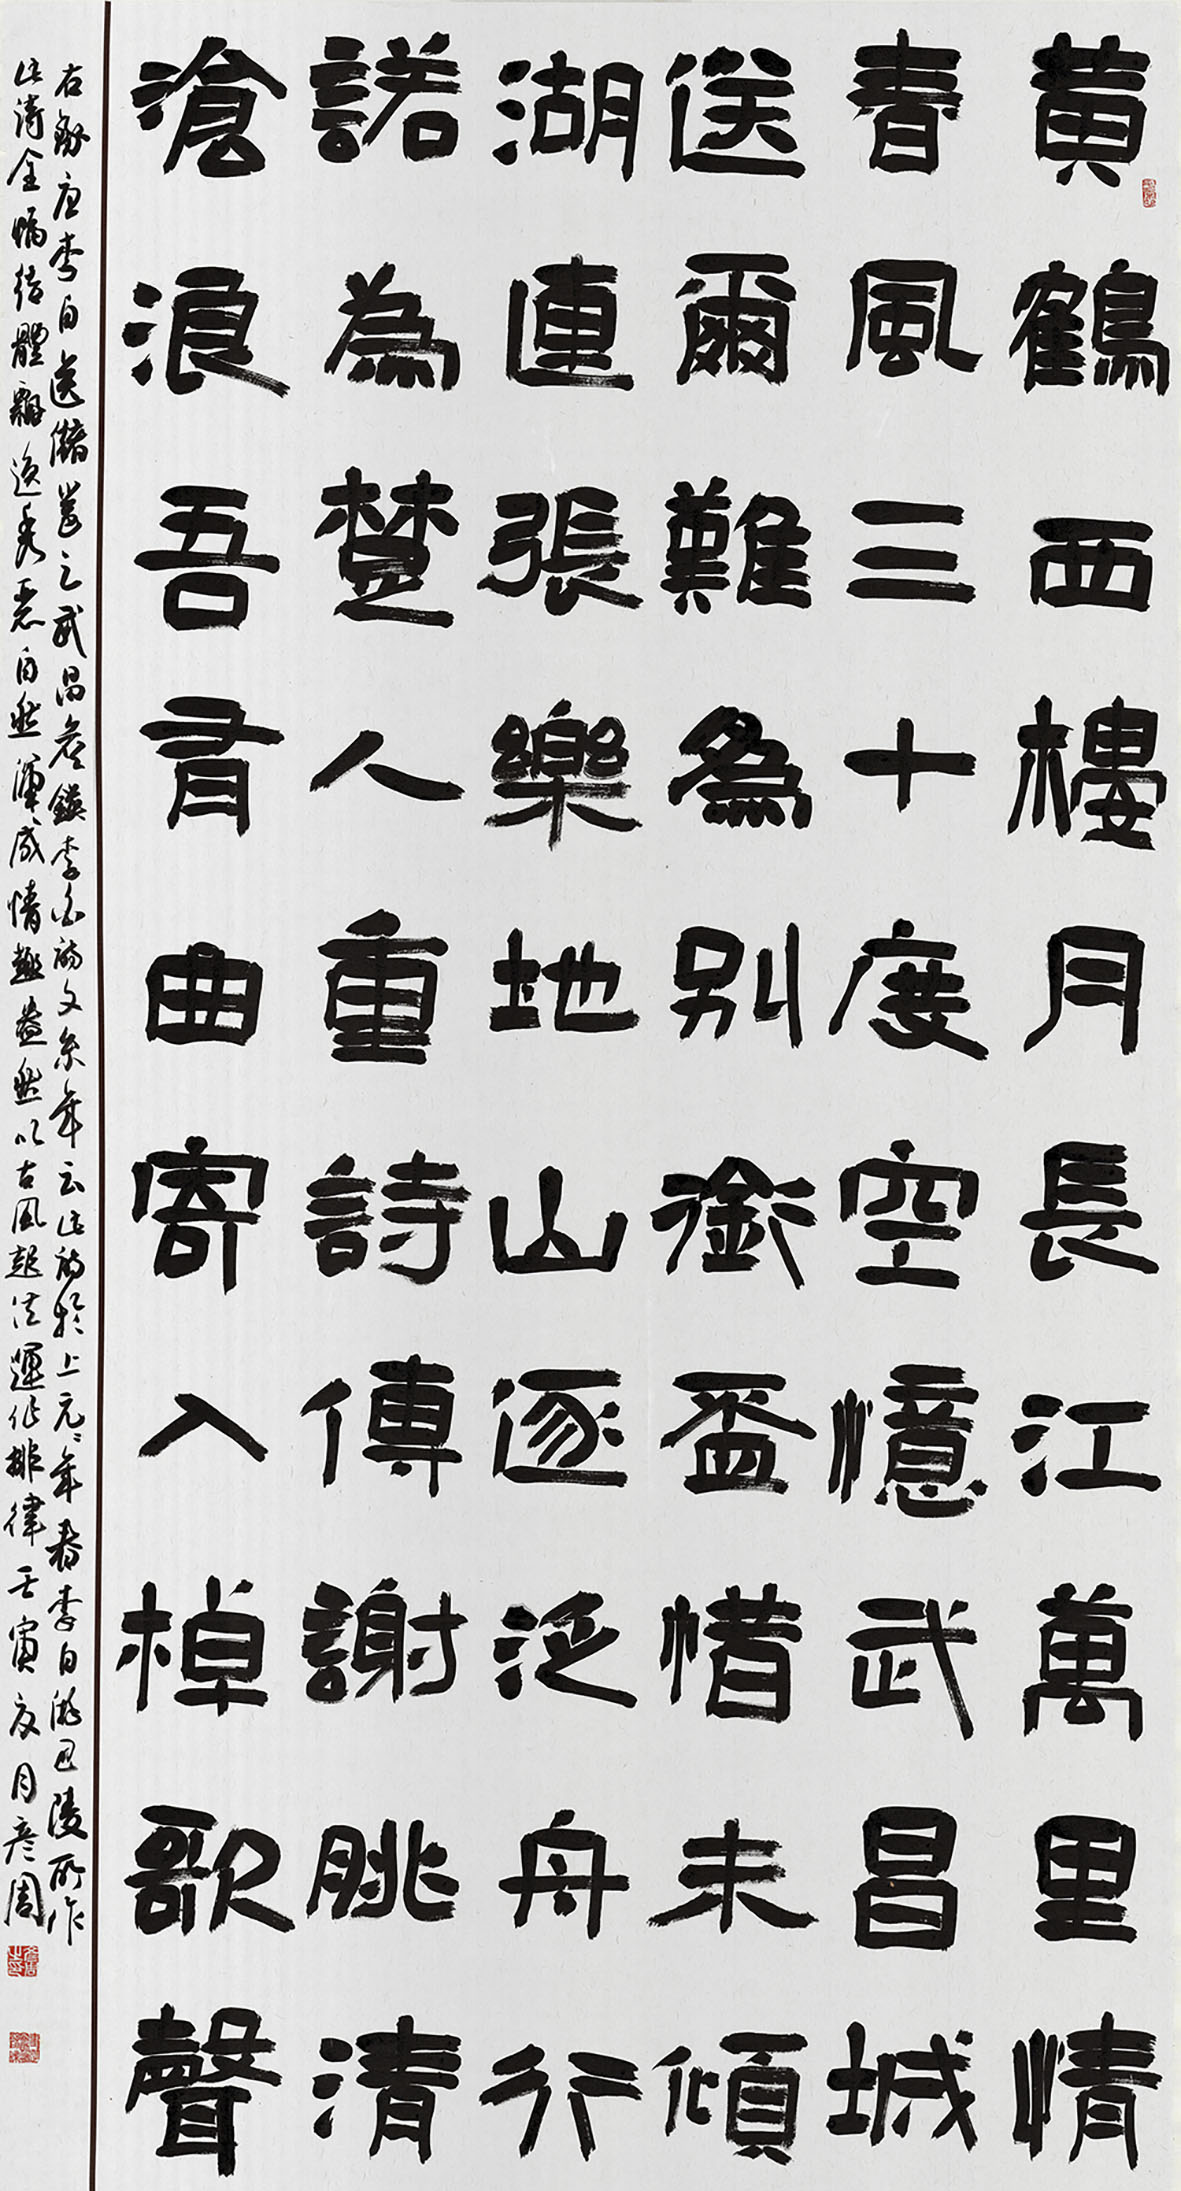 黄鶴西樓月長江萬里情
春風三十度空憶武昌城
送爾難為別銜盃惜未傾
湖連張樂地山逐泛舟行
諾為楚人重詩傳謝朓清
滄浪吾有曲寄入棹歌聲
右錄唐李白送儲邕之武昌詹鍈李白詩文系年云此詩於上元二年春李白游巴陵所作
此詩全幅結體翩逸自然渾成情趣盎然以古風起法運作排律壬寅夏月彥周